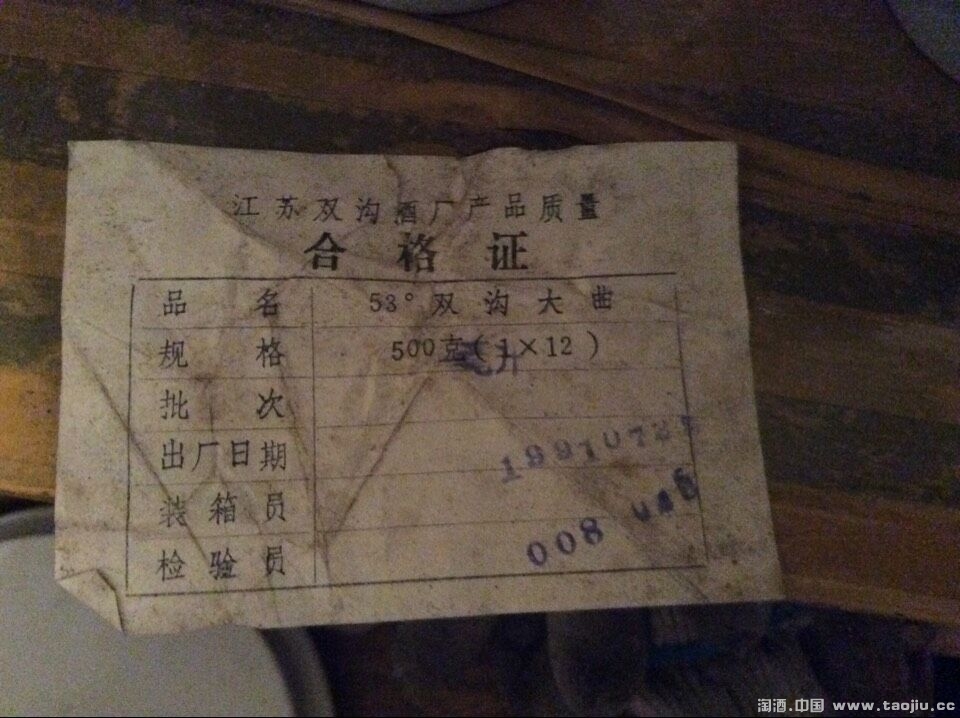 江苏双沟酒厂产品质量
合格证
品名 53°双沟大曲
规格 500克(1×12)
毫升
批次
出厂日期
装箱员
检验员
008
淘酒.中国 www.taojiu.cc